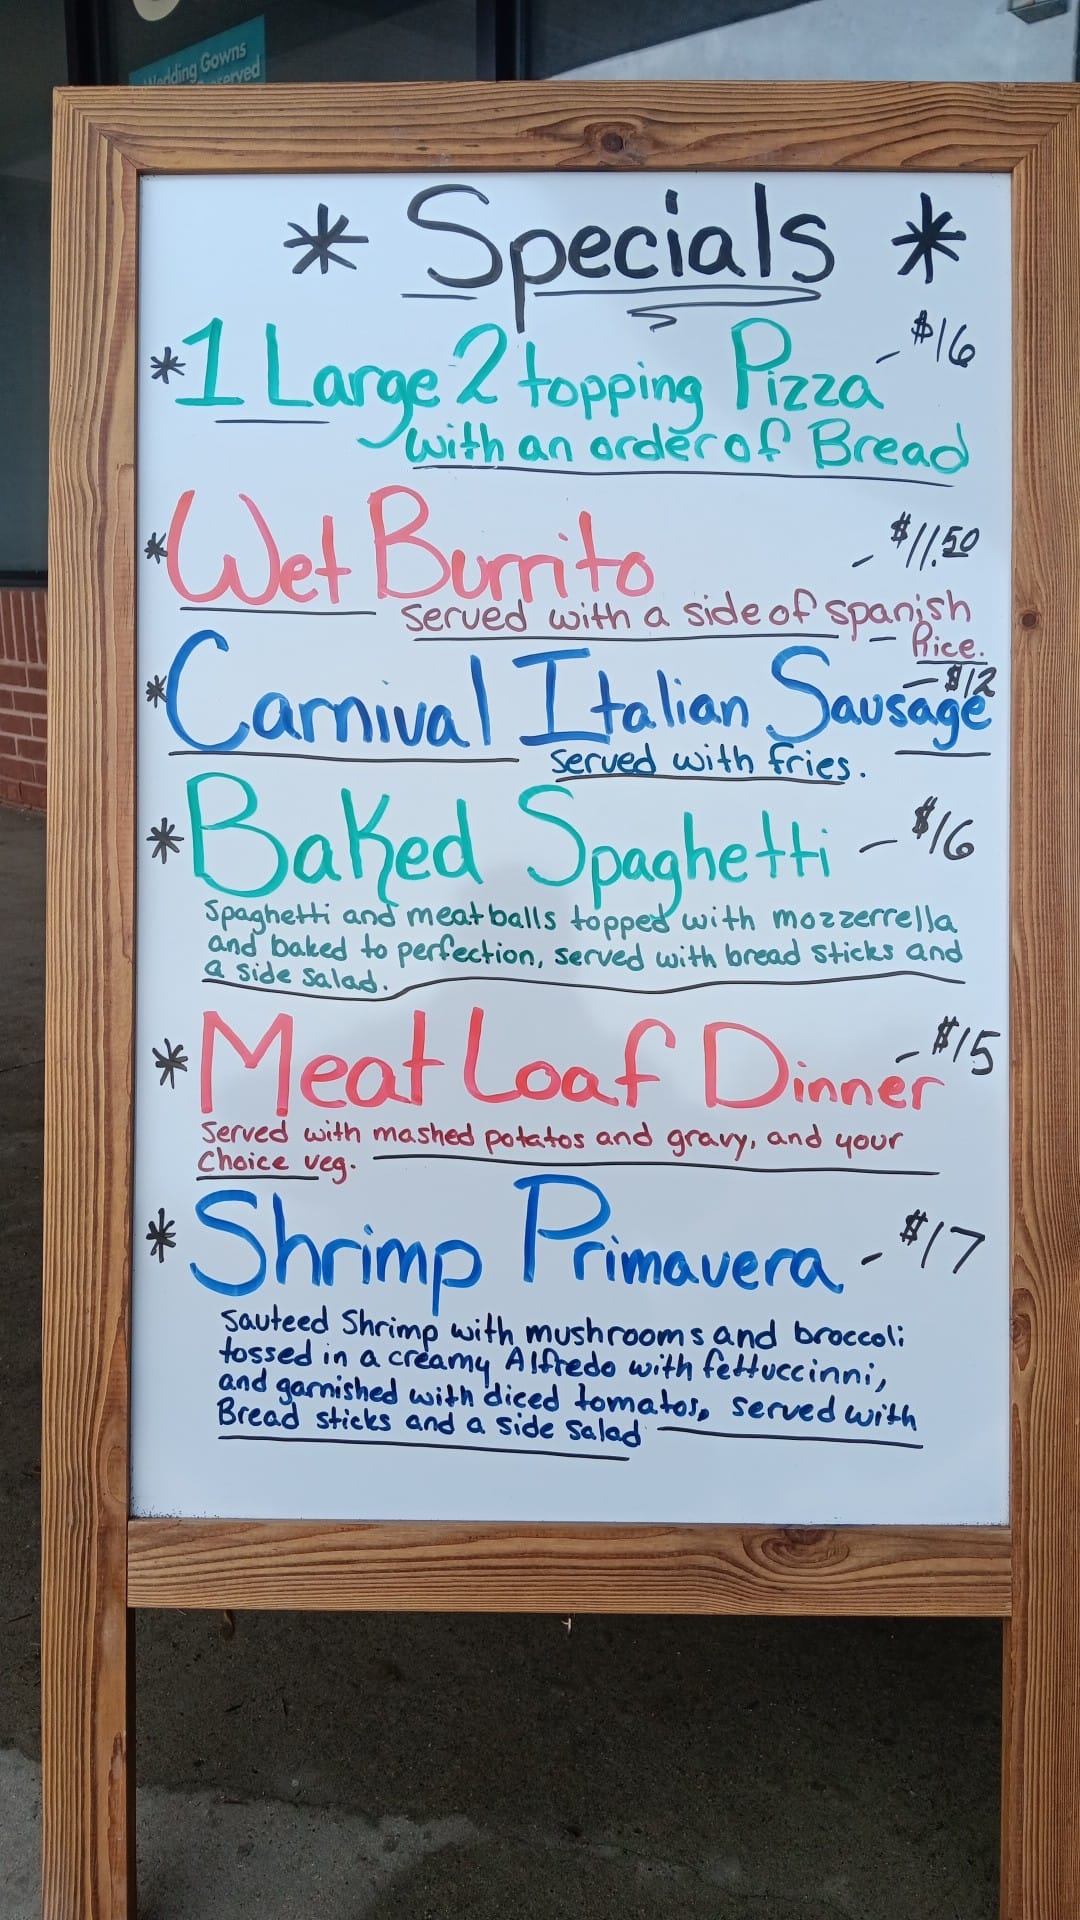 Wedding Gowns
* Specials *
*1 Large 2 topping Pizza - $16
with an order of Bread
*Wet Burrito - $11.50
served with a side of spanish
Rice.
*Carnival Italian Sausage - $12
served with fries.
*Baked Spaghetti - $16
Spaghetti and meatballs topped with mozzerrella
and baked to perfection, served with bread sticks and
a side salad.
*Meat Loaf Dinner - $15
Served with mashed potatos and gravy, and your
Choice veg.
*Shrimp Primavera - $17
Sauteed Shrimp with mushrooms and broccoli
tossed in a creamy Alfredo with fettuccinni,
and garnished with diced tomatos, served with
Bread sticks and a side salad